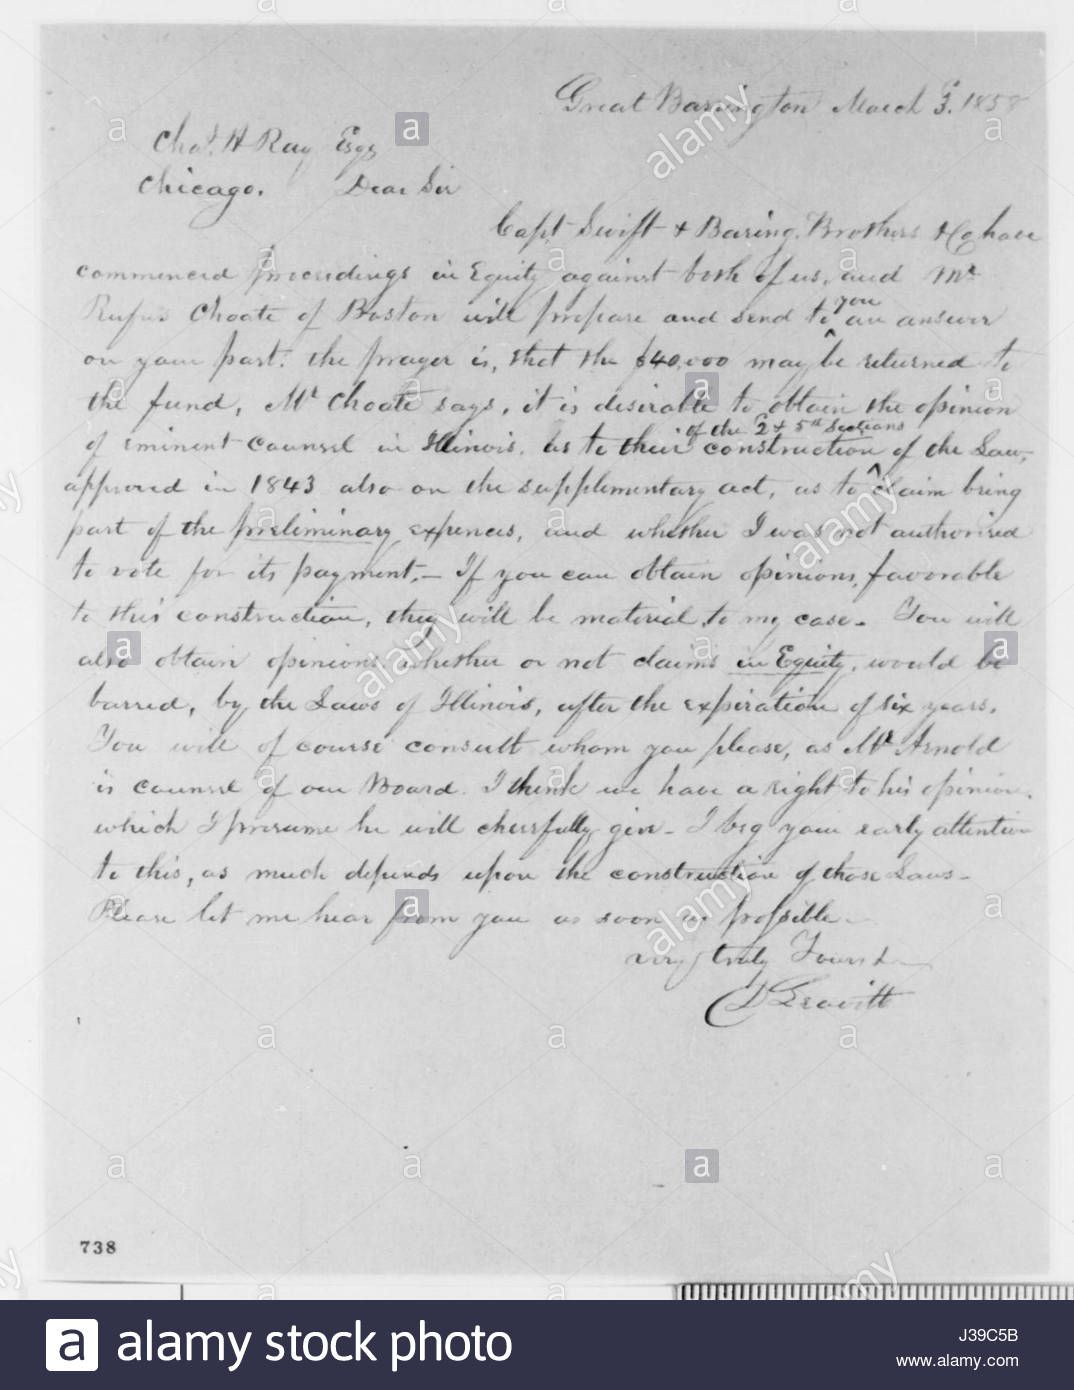 Great Barrington March 3. 1858
Chas. H Ray Esqr
Chicago. Dear Sir
Capt Swift & Baring Brothers & Co have
commenced proceedings in Equity against both of us, and Mr
Rufus Choate of Boston will prepare and send to you an answer
on your part. the prayer is, that the $40,000 may be returned to
the fund, Mr Choate says, it is desirable to obtain the opinion
of eminent counsel in Illinois, as to their construction of the Law,
of the 2 & 5th Sections
approved in 1843 also on the supplementary act, as to claim being
part of the preliminary expences, and whether I was not authorised
to vote for its payment,— If you can obtain opinions, favorable
to this construction, they will be material to my case— You will
also obtain opinions whether or not claims in Equity, would be
barred, by the Laws of Illinois, after the expiration of six years.
You will of course consult whom you please, as Mr Arnold
is counsel of our Board. I think we have a right to his opinion,
which I presume he will cheerfully give— I beg your early attention
to this, as much depends upon the construction of those Laws—
Please let me hear from you as soon as possible—
very truly Yours
D Leavitt
738
alamy stock photo
J39C5B
www.alamy.com